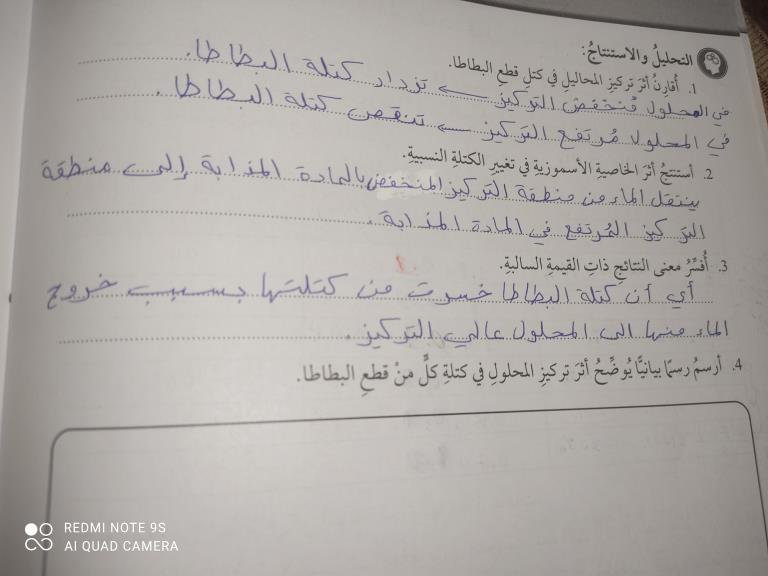 التحليلُ والاستنتاجُ:
1. أُقارِنُ أثرَ تركيزِ المحاليلِ في كتلِ قطعِ البطاطا.
في المحلول مُنخفض التركيز ← تزداد كتلة البطاطا.
في المحلول مُرتفع التركيز ← تنقص كتلة البطاطا.
2. أستنتجُ أثرَ الخاصيةِ الأسموزيةِ في تغييرِ الكتلةِ النسبيةِ.
ينتقل الماء من منطقة التركيز المنخفض بالمادة المذابة إلى منطقة
التركيز المُرتفع في المادة المذابة.
3. أُفسِّرُ معنى النتائجِ ذاتِ القيمةِ السالبةِ.
أي أن كتلة البطاطا خسرت من كتلتها بسبب خروج
الماء منها الى المحلول عالي التركيز.
4. أرسمُ رسمًا بيانيًّا يُوضِّحُ أثرَ تركيزِ المحلولِ في كتلةِ كلٍّ منْ قطعِ البطاطا.
REDMI NOTE 9S
AI QUAD CAMERA